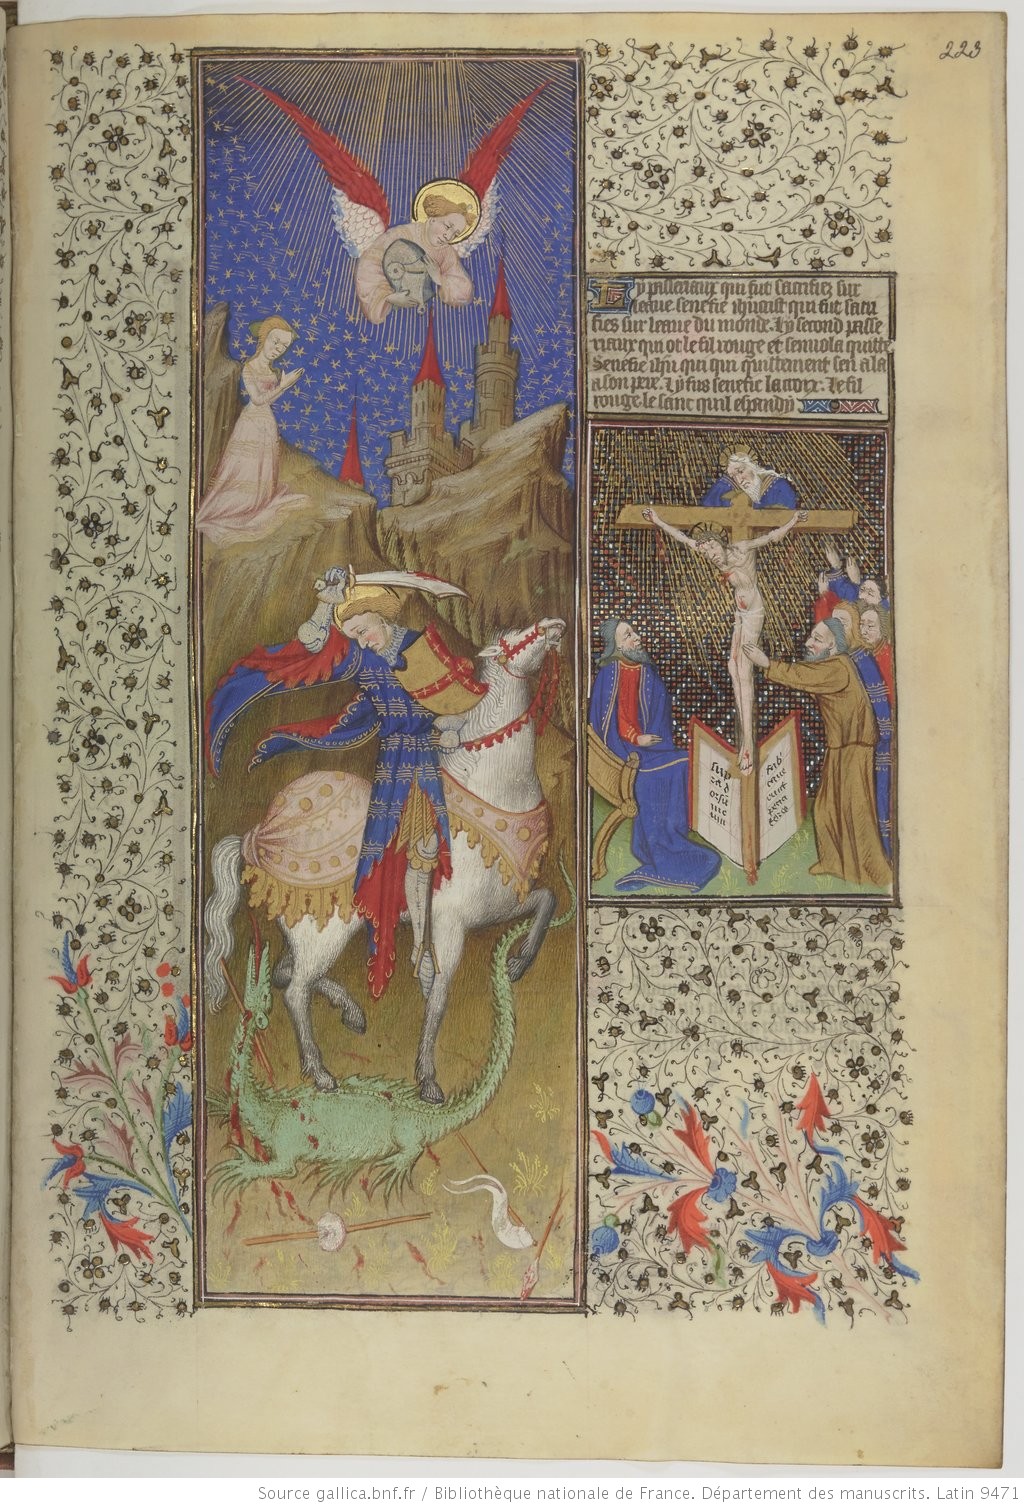 223
Ly passeriaux qui fut sacrifiez sur
leaue senefie ihucrist qui fut sacri
fies sur leaue du monde. Ly second passe
riaux qui ot le fil rouge et senuola quitte
Senefie ihu qui quittement sen ala
a son pere. Ly fus senefie la croix. Le fil
rouge le sanc quil espandy
Source gallica.bnf.fr / Bibliothèque nationale de France. Département des manuscrits. Latin 9471